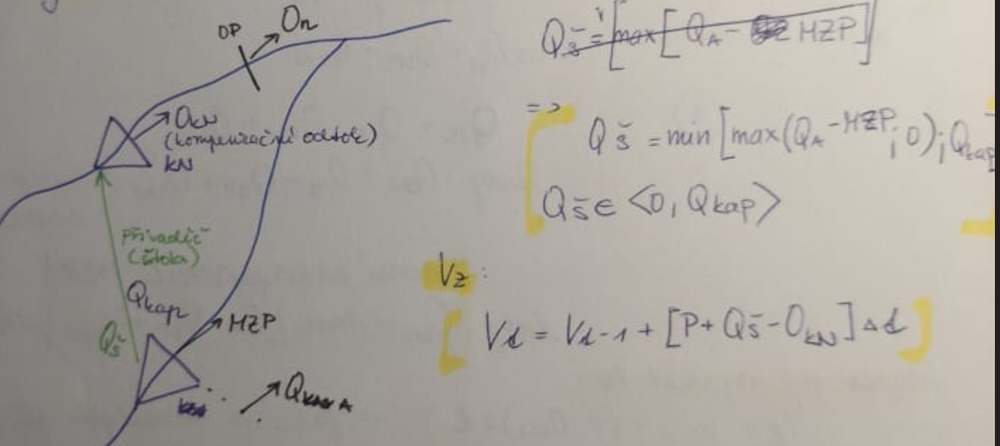 OP
On
OKN
(kompenzační odtok)
KN
Přivaděč
(štola)
Qkap
Qš
MZP
Qš = [max[QA - MZP]
=>
Qš = min[max(QA - MZP; 0); Qkap]
Qš ∈ <0, Qkap>
Vz:
Vt = Vt-1 + [P + Qš - OKN] Δt